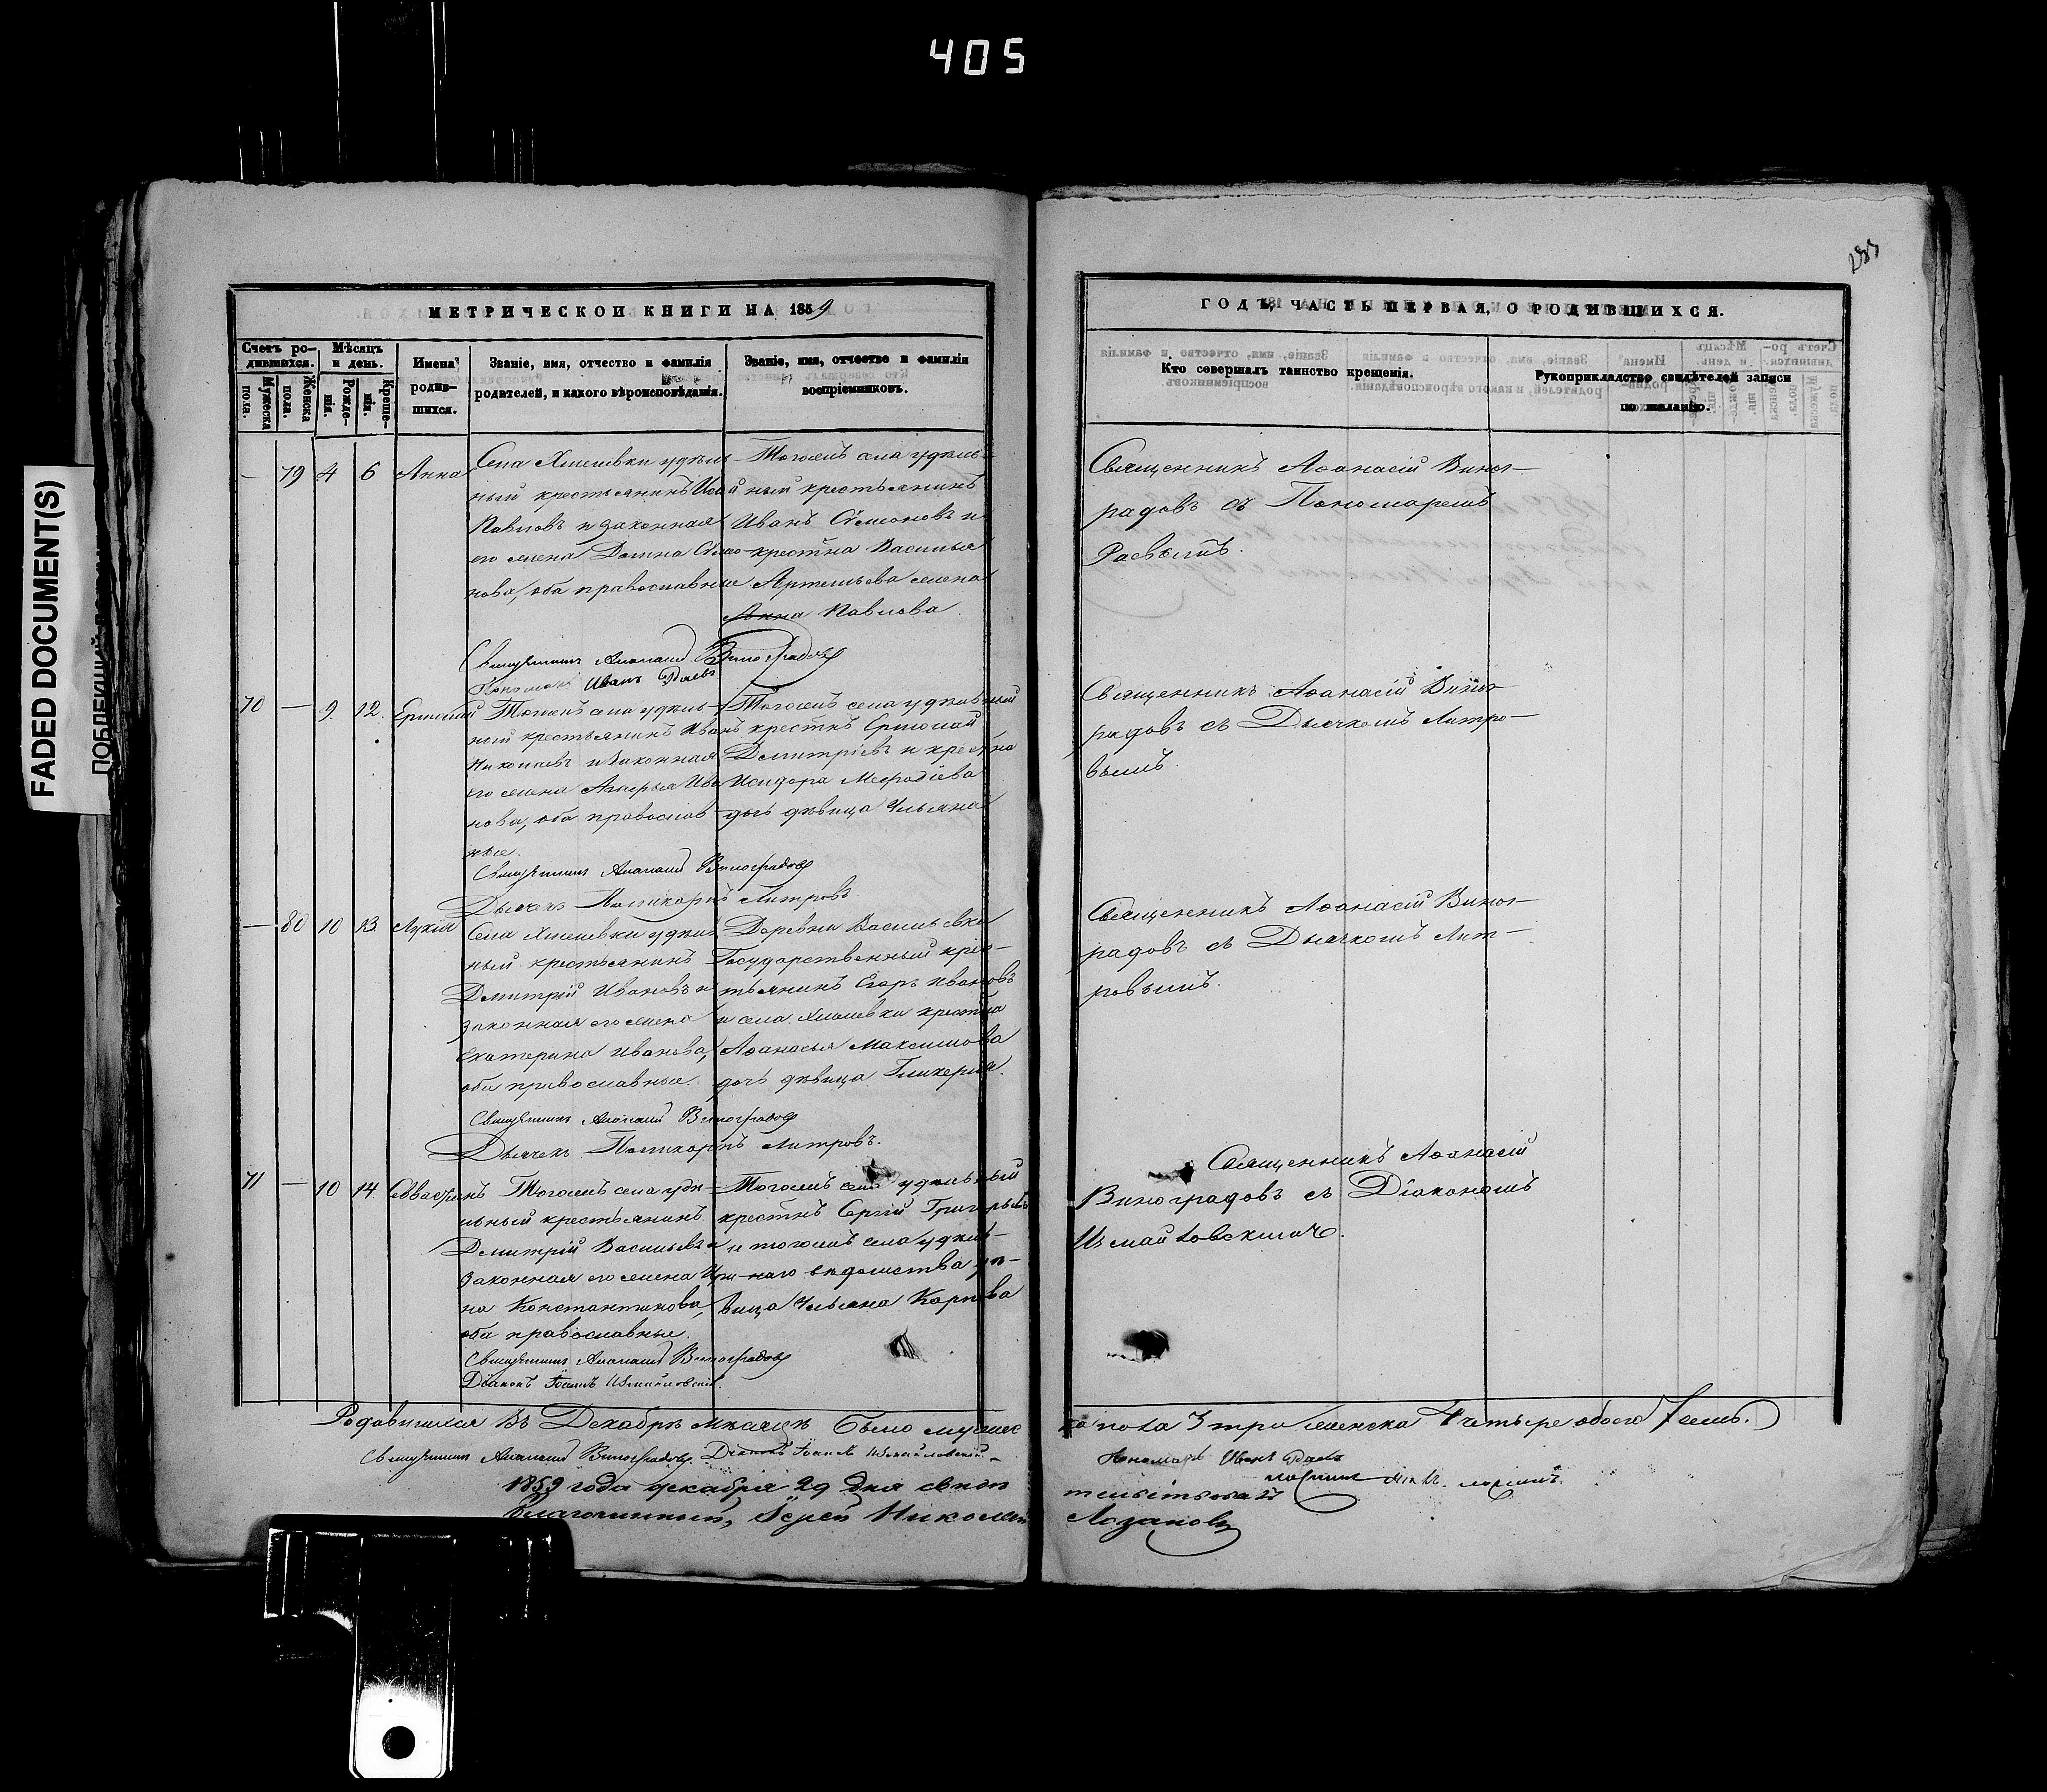 405
283
FADED DOCUMENT(S)
МЕТРИЧЕСКОЙ КНИГИ НА 1859
ГОДЪ, ЧАСТЬ ПЕРВАЯ, О РОДИВШИХСЯ.
Счетъ ро-
дившихся.
Мужеска пола.
Женска пола.
Мѣсяцъ
и день.
Рожде-
нія.
Креще-
нія.
Имена
родив-
шихся.
Званіе, имя, отчество и фамилія
родителей, и какого вѣроисповѣданія.
Званіе, имя, отчество и фамилія
воспріемниковъ.
Кто совершалъ таинство крещенія.
Рукоприкладство свидѣтелей записи
по желанію.
— 79 4 6 Анна
Села Хмелевки удѣль-
ный крестьянинъ Исай
Павловъ и законная
его жена Домна Семе-
нова, оба православные
Тогожъ села удѣль-
ный крестьянинъ
Иванъ Семеновъ и
крестна Василья
Артемьева жена
Анна Павлова.
Священникъ Аѳанасій Виног-
радовъ съ Пономаремъ
Раевымъ.
Священникъ Аѳанасій Виноградовъ
Пономарь Иванъ Раевъ
70 — 9 12 Ермолай
Тогожъ села удѣль-
ный крестьянинъ Иванъ
Николаевъ и законная
его жена Агаѳья Ива
нова, оба православ-
ные.
Тогожъ села удѣльный
крестнъ Ермолай
Дмитріевъ и крестна
Исидора Меѳодіева
дочь дѣвица Ульяна
Священникъ Аѳанасій Виног-
радовъ съ Дьячкомъ Литро-
вымъ.
Священникъ Аѳанасій Виноградовъ
Дьячекъ Поликарпъ Литровъ.
— 80 10 13 Лукія
Села Хмелевки удѣль
ный крестьянинъ
Дмитрій Ивановъ и
законная его жена
Екатерина Иванова,
оба православные.
Деревни Васильевки
Государственный крес-
тьянинъ Егоръ Ивановъ
и села Хмелевки крестна
Аѳанасья Максимова
дочь дѣвица Гликерія.
Священникъ Аѳанасій Виног-
радовъ съ Дьячкомъ Лит-
ровымъ.
Священникъ Аѳанасій Виноградовъ
Дьячекъ Поликарпъ Литровъ.
71 — 10 14 Севвастіянъ
Тогожъ села удѣ-
льный крестьянинъ
Дмитрій Васильевъ и
законная его жена Ири-
на Константинова,
оба православные.
Тогожъ села удѣльный
крестнъ Сергій Григорьевъ
и тогожъ села удѣль-
наго вѣдомства дѣ-
вица Ульяна Карпова
Священникъ Аѳанасій
Виноградовъ съ Діакономъ
Измайловскимъ.
Священникъ Аѳанасій Виноградовъ
Діаконъ Іоаннъ Измайловскій.
Родившихся въ Декабрѣ мѣсяцѣ было мужес
ка пола 3 три женска 4 четыре обоего 7 семь.
Священникъ Аѳанасій Виноградовъ Діаконъ Іоаннъ Измайловскій
Пономарь Иванъ Раевъ
1859 года декабря 29 дня свидѣ
тельствовалъ
Благочинный, Іерей Николай
Лозановъ